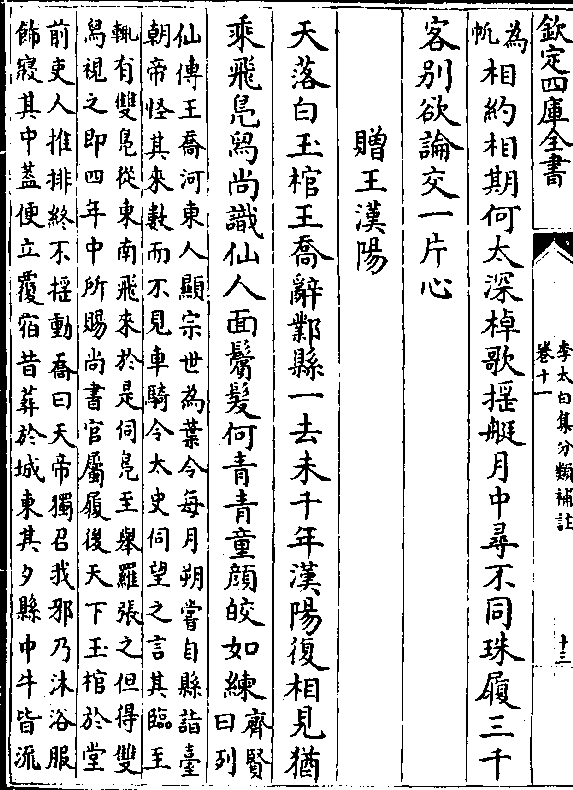 欽定四庫全書
李太白集分類補註
卷十一
十三
為
帆
相約相期何太深棹歌摇艇月中尋不同珠履三千
客别欲論交一片心
贈王漢陽
天落白玉棺王喬辭鄴縣一去未千年漢陽復相見猶
乘飛鳬舄尚識仙人面鬢髮何青青童顔皎如練
齊賢
曰列
仙傳王喬河東人顯宗世為葉令每月朔嘗自縣詣臺
朝帝怪其來數而不見車騎令太史伺望之言其臨至
輒有雙鳬從東南飛來於是伺鳬至舉羅張之但得雙
舄視之即四年中所賜尚書官屬履後天下玉棺於堂
前吏人推排終不揺動喬曰天帝獨召我邪乃沐浴服
飾寢其中葢便立覆宿昔葬於城東其夕縣中牛皆流